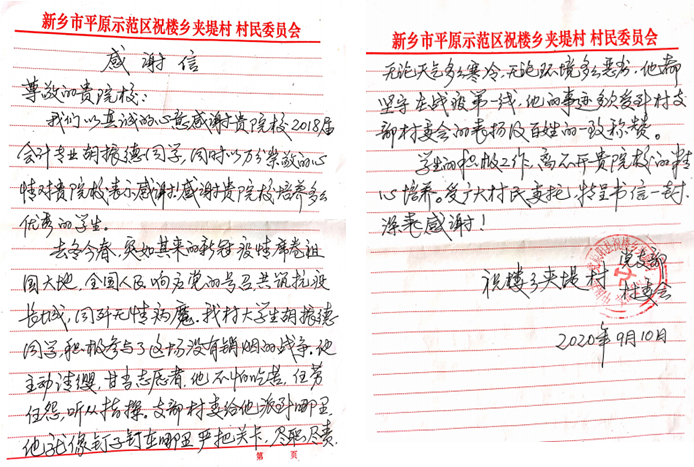 新乡市平原示范区祝楼乡夹堤村 村民委员会
感谢信
尊敬的贵院校：
我们以真诚的心意感谢贵院校2018届
会计专业胡振德同学，同时以万分崇敬的心
情对贵院校表示感谢！感谢贵院校培养多么
优秀的学生。
去冬今春，突如其来的新冠疫情席卷祖
国大地，全国人民响应党的号召共筑抗疫
长城，同斗无情病魔。我村大学生胡振德
同学，积极参与了这场没有销烟的战争。他
主动请缨，甘当志愿者，他不怕吃苦，任劳
任怨，听从指挥。支部村委给他派到哪里
他就像钉子钉在哪里严把关卡，尽职尽责.
第 页
新乡市平原示范区祝楼乡夹堤村 村民委员会
无论天气多么寒冷，无论环境多么恶劣，他都
坚守在战疫第一线，他的事迹多次受到村支
部村委会的表扬及百姓的一致称赞。
学生的积极工作，离不开贵院校的精
心培养。受广大村民委托，特呈书信一封，
深表感谢！
祝楼乡夹堤村 党支部
村委会
2020年9月10日